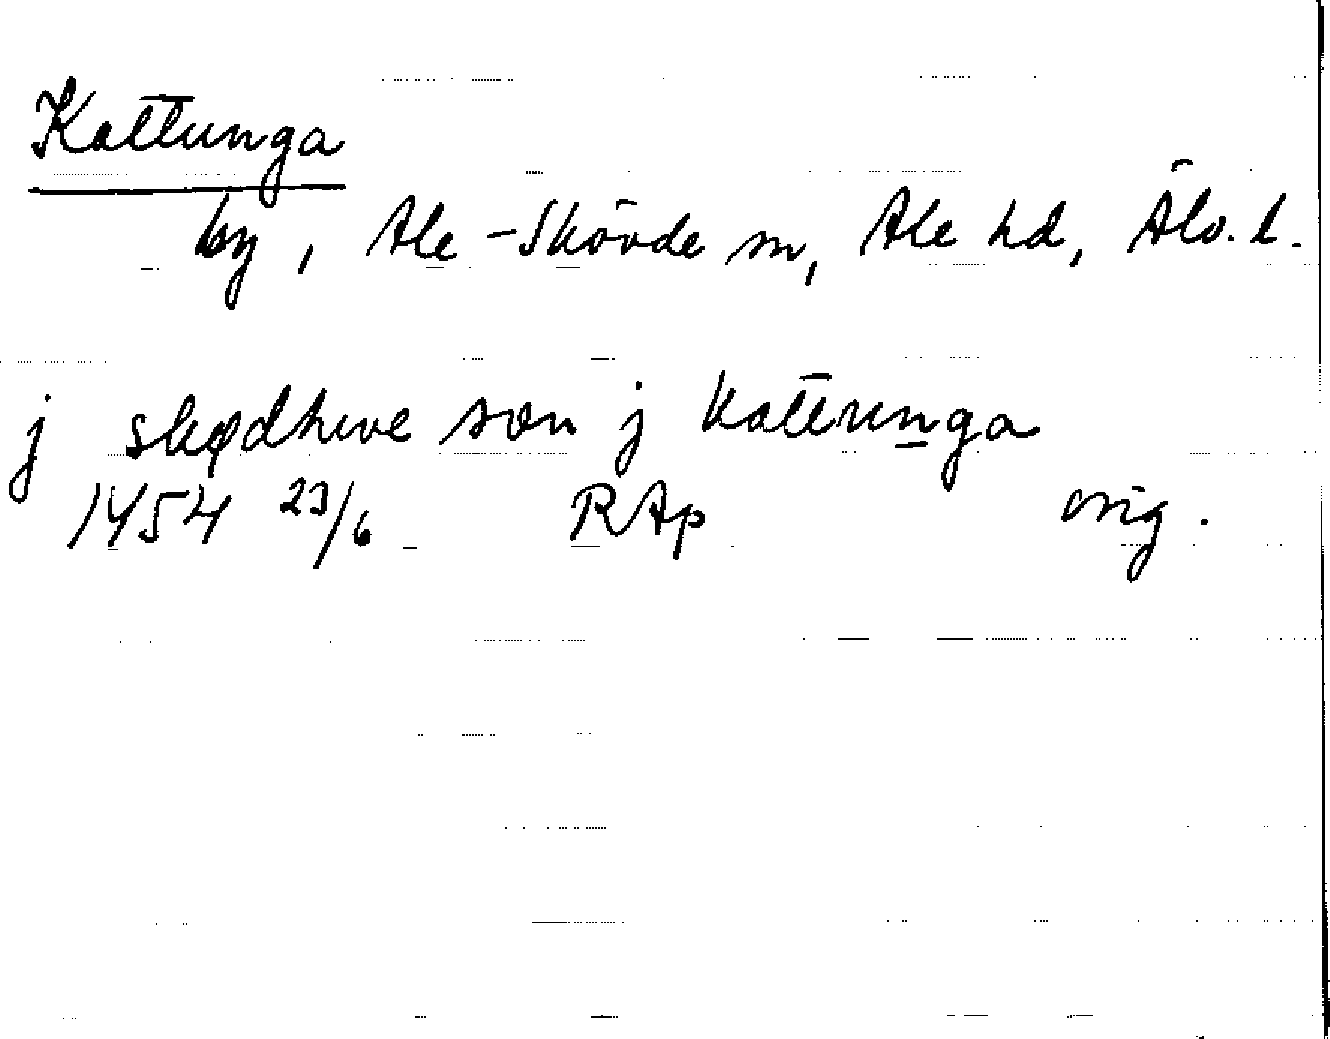 Kattunga
by, Ale-Skövde sn, Ale hd, Älv. l.
j skødhwe søn j kattunga
1454 23/6 RAp orig.